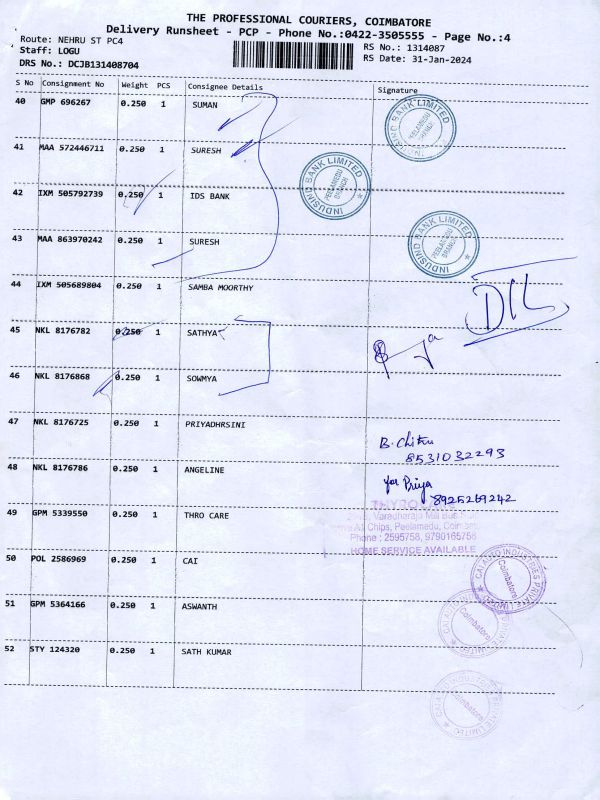 THE PROFESSIONAL COURIERS, COIMBATORE
Delivery Runsheet - PCP - Phone No.:0422-3505555 - Page No.:4
Route: NEHRU ST PC4
RS No.: 1314087
Staff: LOGU
RS Date: 31-Jan-2024
DRS No.: DCJB131408704
S No Consignment No Weight PCS Consignee Details Signature
40 GMP 696267 0.250 1 SUMAN
INDUSIND BANK LIMITED PEELAMEDU BRANCH
41 MAA 572446711 0.250 1 SURESH
INDUSIND BANK LIMITED PEELAMEDU BRANCH
42 IXM 505792739 0.250 1 IDS BANK
43 MAA 863970242 0.250 1 SURESH
INDUSIND BANK LIMITED PEELAMEDU BRANCH
44 IXM 505689804 0.250 1 SAMBA MOORTHY
45 NKL 8176782 0.250 1 SATHYA
46 NKL 8176868 0.250 1 SOWMYA
47 NKL 8176725 0.250 1 PRIYADHRSINI
B. Chitra
8531032293
48 NKL 8176786 0.250 1 ANGELINE
for Priya
8925269242
49 GPM 5339550 0.250 1 THRO CARE
A1 Chips, Peelamedu,
Phone : 2595758, 9790165758
HOME SERVICE AVAILABLE
50 POL 2586969 0.250 1 CAI
INDUSTRIES PRIVATE LIMITED Coimbatore
51 GPM 5364166 0.250 1 ASWANTH
Coimbatore
52 STY 124320 0.250 1 SATH KUMAR
Coimbatore